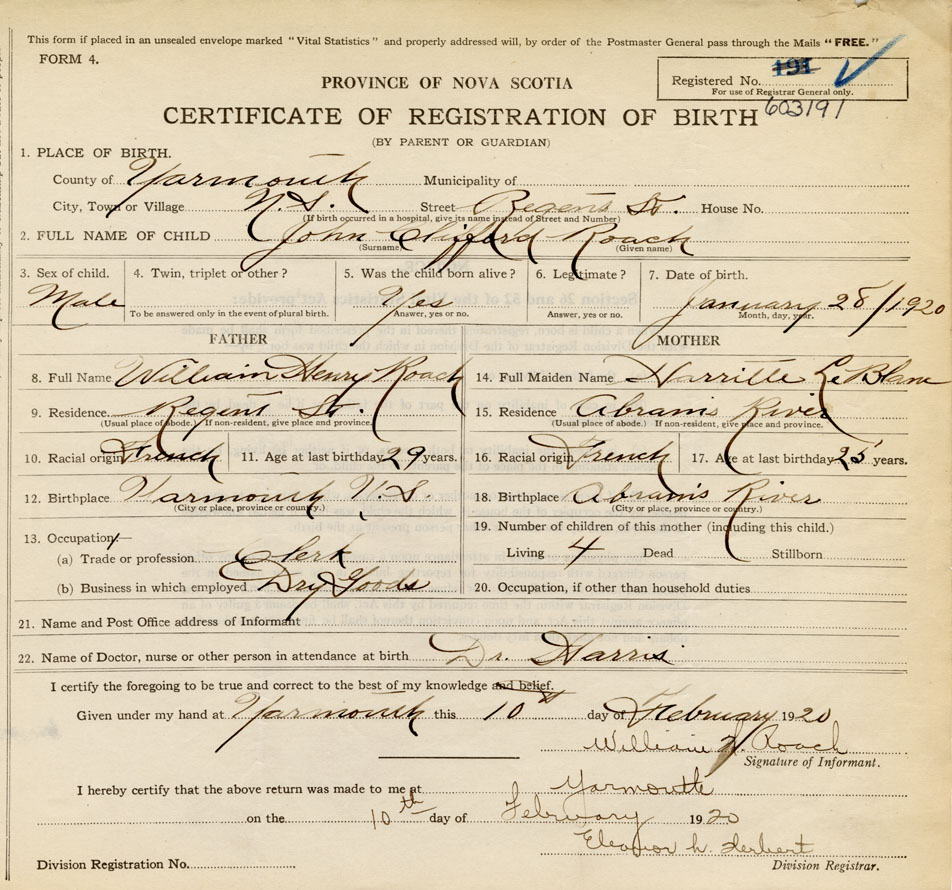 This form if placed in an unsealed envelope marked "Vital Statistics" and properly addressed will, by order of the Postmaster General pass through the Mails "FREE."
FORM 4.
PROVINCE OF NOVA SCOTIA
Registered No. 191
For use of Registrar General only.
603191
CERTIFICATE OF REGISTRATION OF BIRTH
(BY PARENT OR GUARDIAN)
1. PLACE OF BIRTH.
County of Yarmouth Municipality of
City, Town or Village N.S. Street Regent St. House No.
(If birth occurred in a hospital, give its name instead of Street and Number)
2. FULL NAME OF CHILD John Clifford Roach
(Surname) (Given name)
3. Sex of child. 4. Twin, triplet or other? 5. Was the child born alive? 6. Legitimate? 7. Date of birth.
Male Yes January 28/1920
To be answered only in the event of plural birth. Answer, yes or no. Answer, yes or no. Month, day, year.
FATHER MOTHER
8. Full Name William Henry Roach 14. Full Maiden Name Harritte LeBlanc
9. Residence Regent St. 15. Residence Abrams River
(Usual place of abode.) If non-resident, give place and province. (Usual place of abode.) If non-resident, give place and province.
10. Racial origin French 11. Age at last birthday 29 years. 16. Racial origin French 17. Age at last birthday 25 years.
12. Birthplace Yarmouth N.S. 18. Birthplace Abrams River
(City or place, province or country.) (City or place, province or country.)
13. Occupation:— 19. Number of children of this mother (including this child.)
(a) Trade or profession Clerk Living 4 Dead Stillborn
(b) Business in which employed Dry Goods 20. Occupation, if other than household duties
21. Name and Post Office address of Informant
22. Name of Doctor, nurse or other person in attendance at birth Dr. Harris
I certify the foregoing to be true and correct to the best of my knowledge and belief.
Given under my hand at Yarmouth this 10th day of February 1920
William H. Roach
Signature of Informant.
I hereby certify that the above return was made to me at Yarmouth
on the 10th day of February 1920
Eleanor h. Herbert
Division Registration No. Division Registrar.